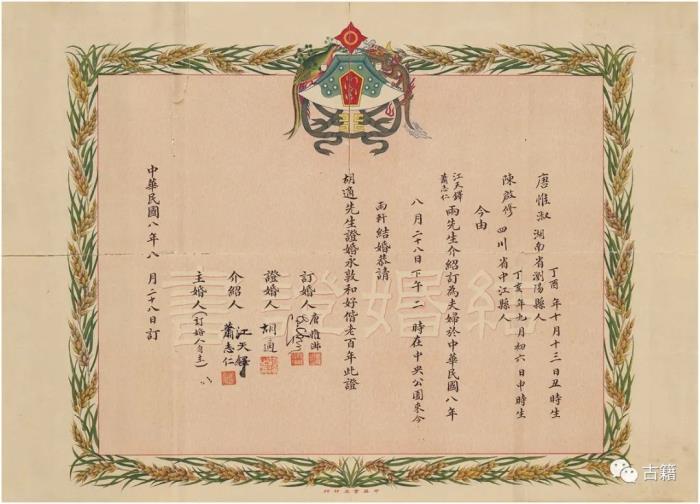 唐惟淑 湖南省瀏陽縣人
丁酉年十月十三日丑時生
陳啟修 四川省中江縣人
丁亥年九月初六日申時生
今由
江天鐸
蕭志仁
兩先生介紹訂為夫婦於中華民國八年
八月二十八日下午二時在中央公園來今
雨軒結婚恭請
胡適先生證婚永敦和好偕老百年此證
訂婚人 唐惟淑
證婚人 胡適
介紹人 江天鐸
蕭志仁
主婚人(訂婚人自主)
中華民國八年八月二十八日訂
結婚證書
古籍